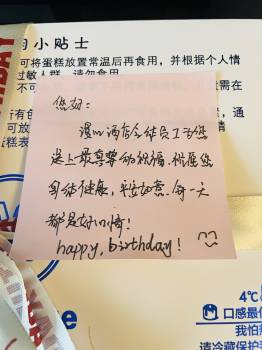 小贴士
可将蛋糕放置常温后再食用，并根据个人情
过敏人群，请勿食用。
您好：
酒店全体员工为您
送上最真挚的祝福，祝愿您
身体健康，平安如意，每一天
都是好心情！
happy, birthday!
4℃
口感最佳
我怕
请冷藏保护